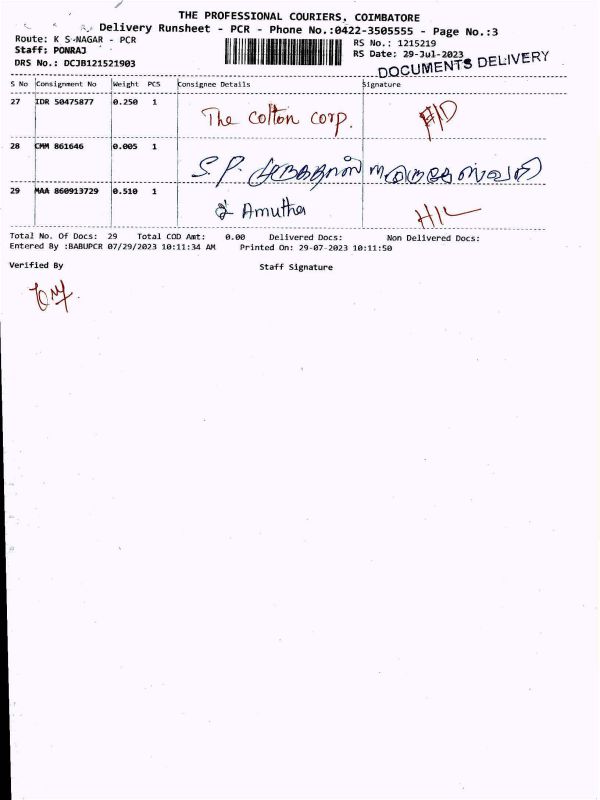 THE PROFESSIONAL COURIERS, COIMBATORE
Delivery Runsheet - PCR - Phone No.:0422-3505555 - Page No.:3
Route: K S-NAGAR - PCR
RS No.: 1215219
Staff: PONRAJ
RS Date: 29-Jul-2023
DRS No.: DCJB121521903
DOCUMENTS DELIVERY
S No Consignment No Weight PCS Consignee Details Signature
27 IDR 50475877 0.250 1
The Cotton corp.
28 CMM 861646 0.005 1
S. P.
29 MAA 860913729 0.510 1
Amutha
Total No. Of Docs: 29 Total COD Amt: 0.00 Delivered Docs: Non Delivered Docs:
Entered By :BABUPCR 07/29/2023 10:11:34 AM Printed On: 29-07-2023 10:11:50
Verified By Staff Signature